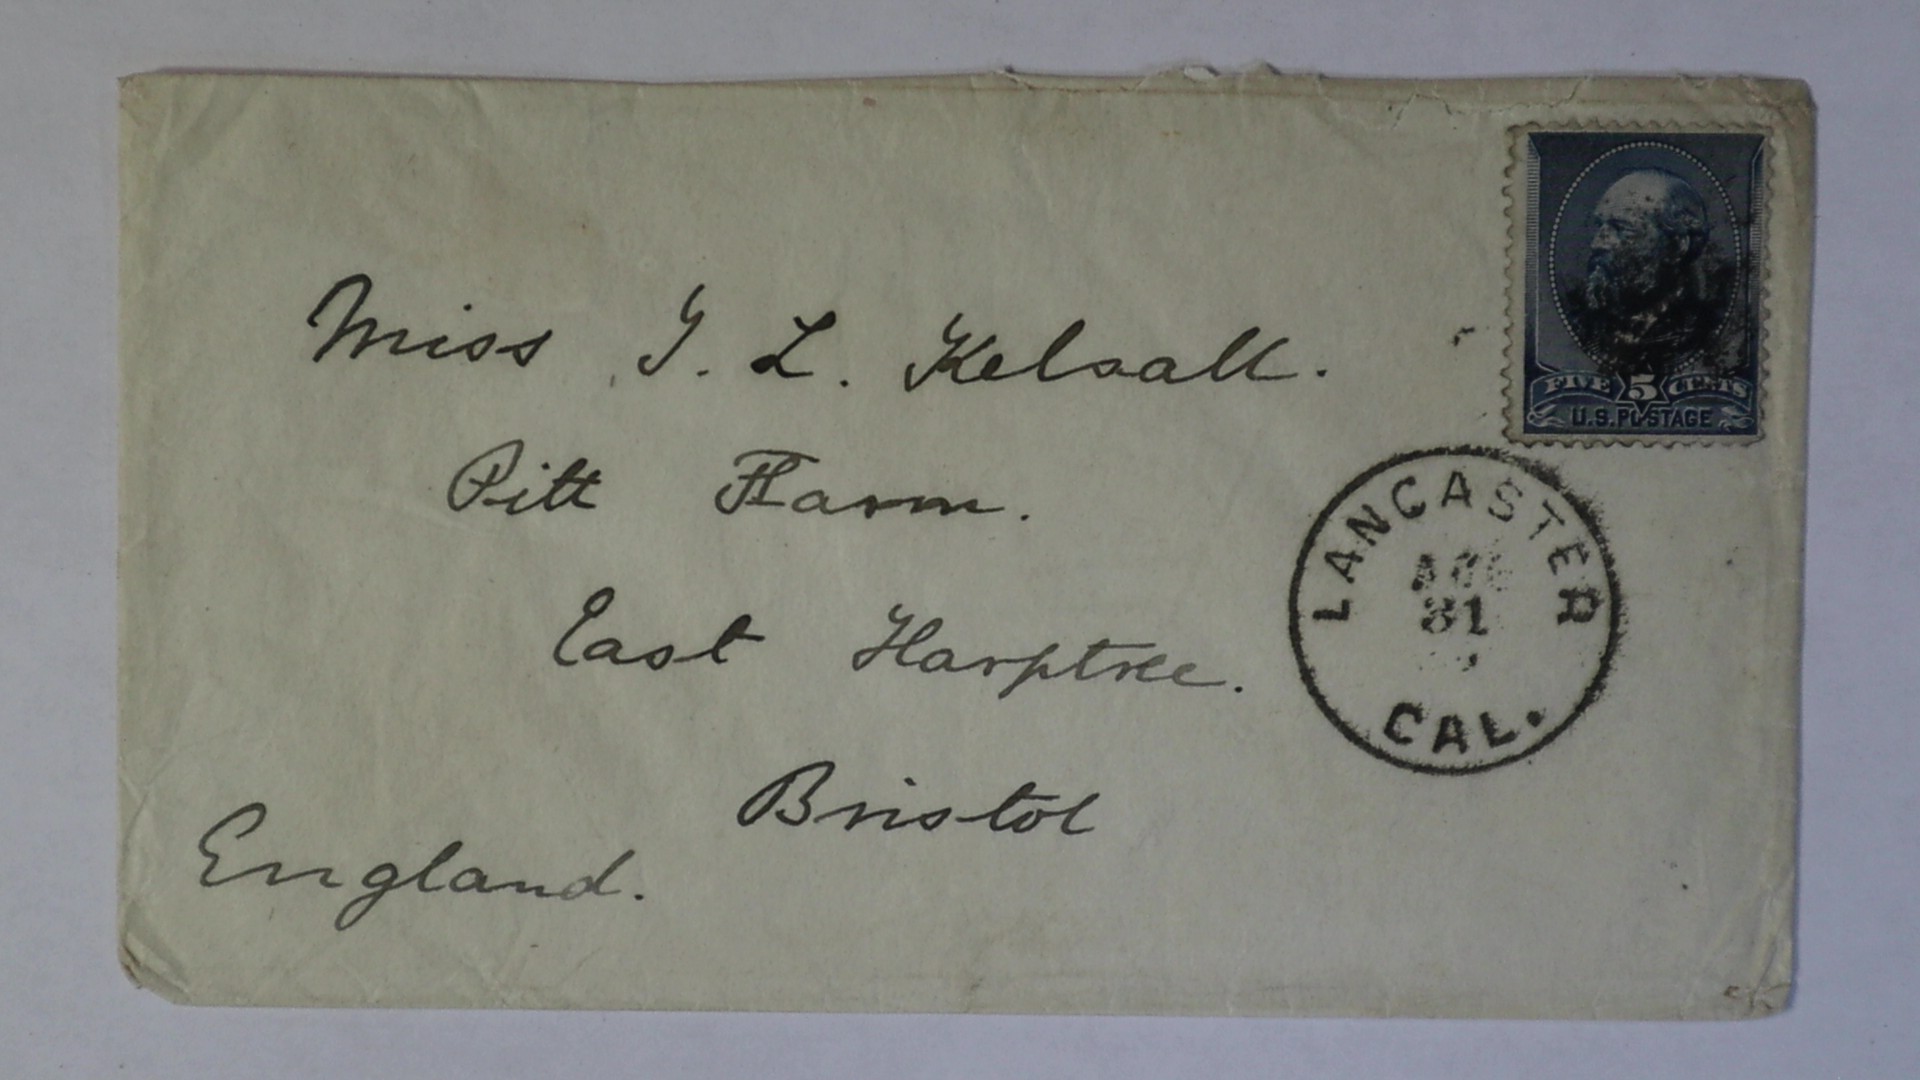 Miss J. L. Kelsall.
Pitt Farm.
East Harptree.
Bristol
England.
FIVE 5 CENTS
U.S. POSTAGE
LANCASTER
AUG
31
CAL.